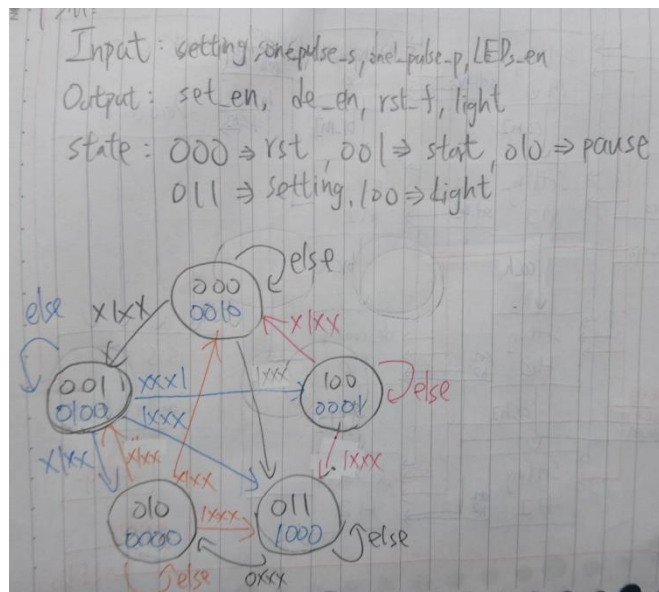 Input : setting, onepulse_s, one_pulse_p, LEDs_en
Output : set_en, de_en, rst_f, light
state : 000 ⇒ rst , 001 ⇒ start, 010 ⇒ pause
011 ⇒ setting, 100 ⇒ Light
else
000
0010
else
X1XX
X1XX
001
0100
XXX1
1XXX
100
0001
else
1XXX
X1XX
X1XX
X1XX
1XXX
010
0000
1XXX
011
1000
else
else
0XXX